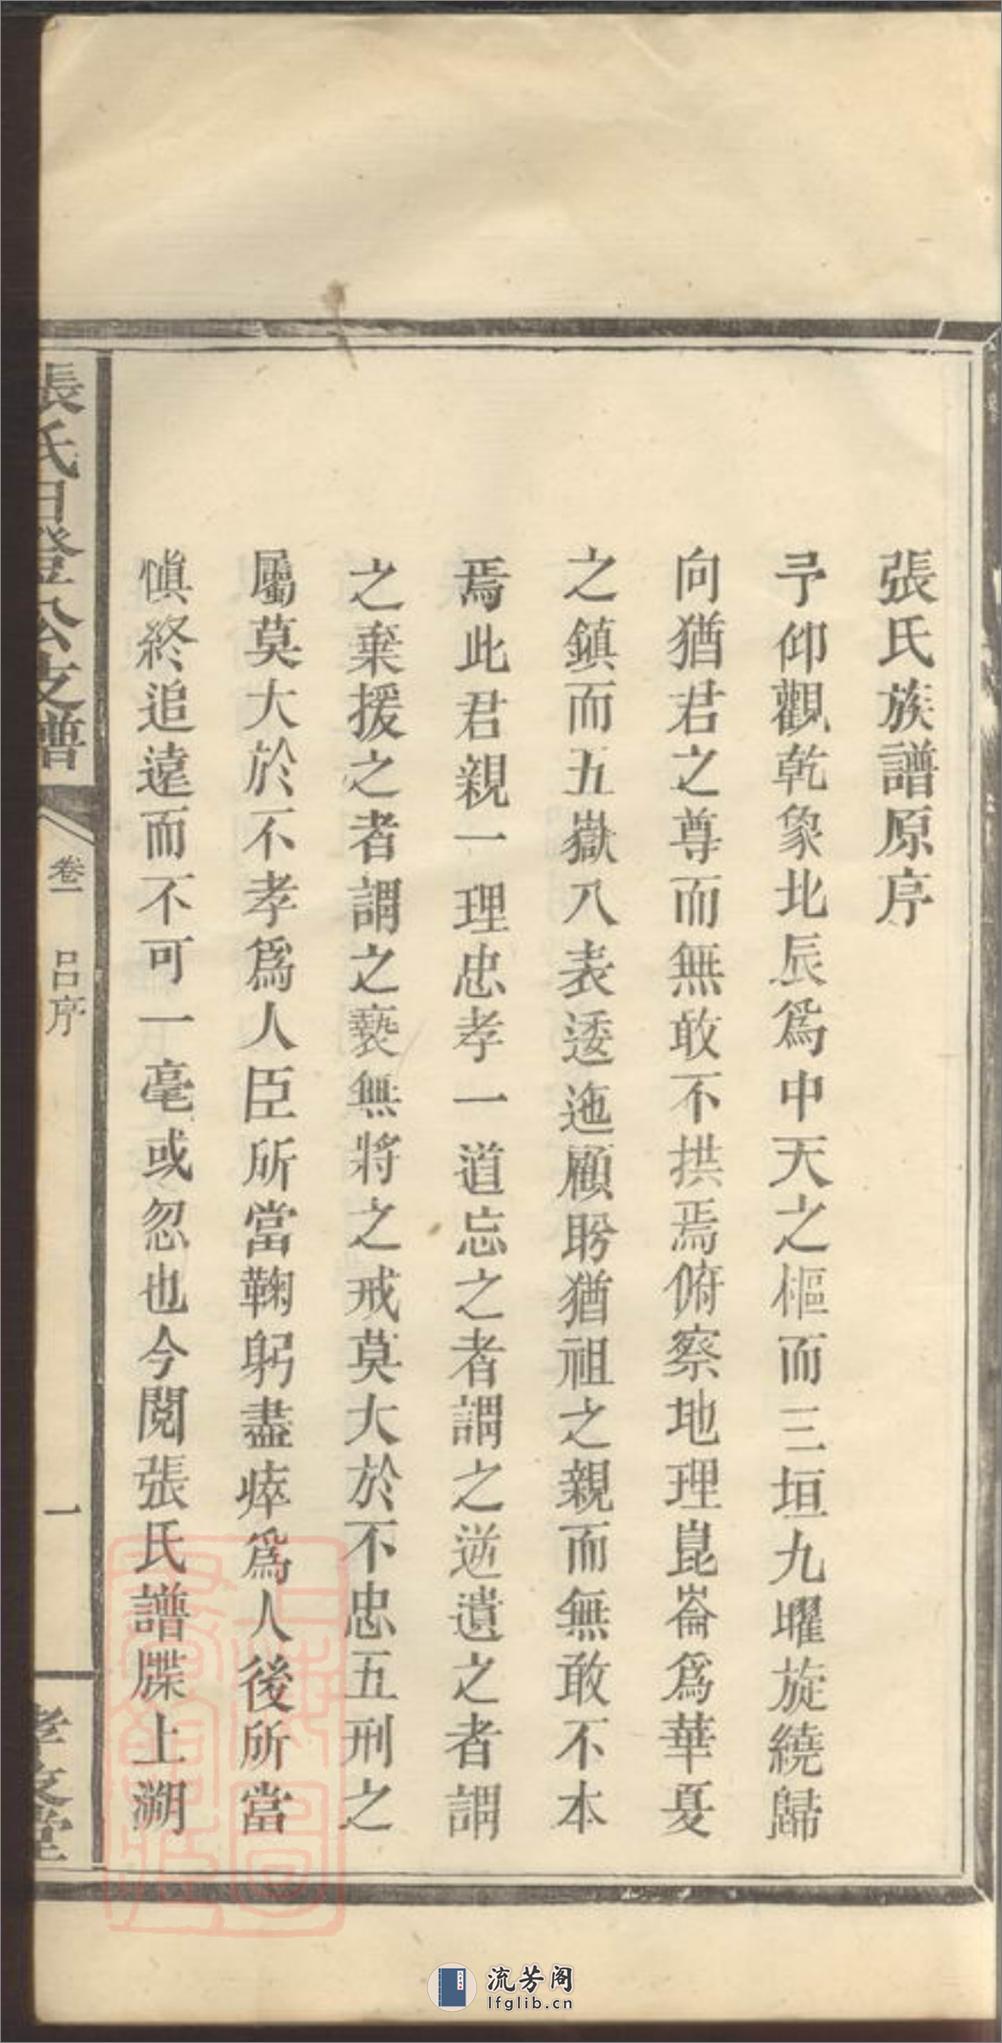 張氏族譜原序
予仰觀乾象北辰爲中天之樞而三垣九曜旋繞歸
向猶君之尊而無敢不拱焉俯察地理崑崙爲華夏
之鎮而五嶽八表逶迤顧盼猶祖之親而無敢不本
焉此君親一理忠孝一道忘之者謂之逆遺之者謂
之棄援之者謂之褻無將之戒莫大於不忠五刑之
屬莫大於不孝爲人臣所當鞠躬盡瘁爲人後所當
愼終追遠而不可一毫或忽也今閱張氏譜牒上溯
張氏日登公支譜
卷一 呂序
一
孝友堂
流芳阁
lfglib.cn